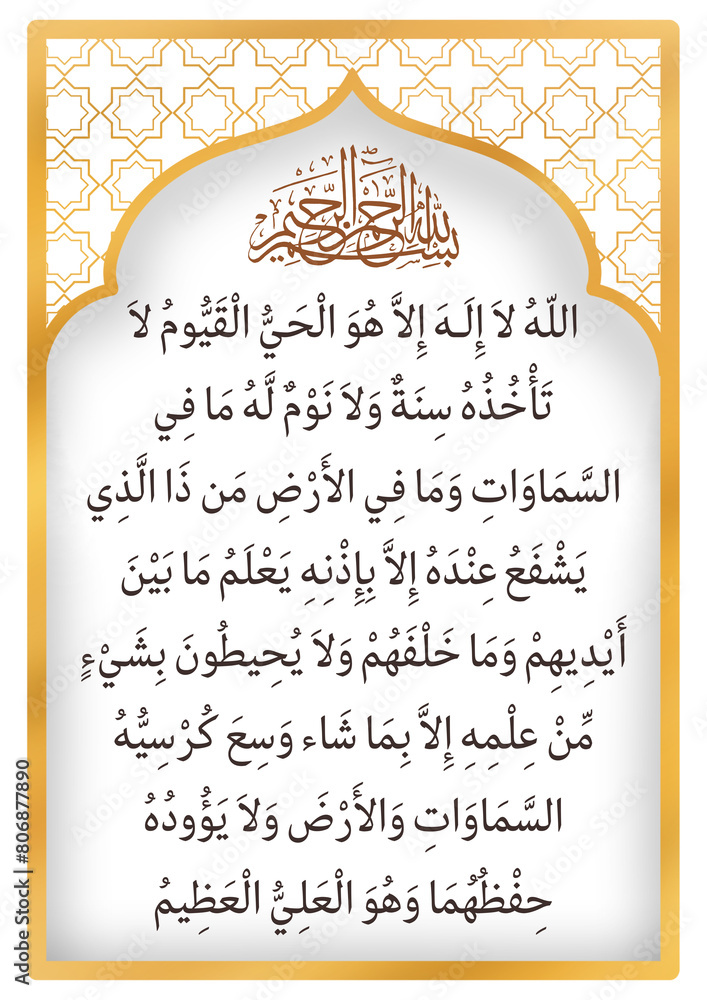 بسم الله الرحمن الرحيم
اللّهُ لاَ إِلَـهَ إِلاَّ هُوَ الْحَيُّ الْقَيُّومُ لاَ
تَأْخُذُهُ سِنَةٌ وَلاَ نَوْمٌ لَّهُ مَا فِي
السَّمَاوَاتِ وَمَا فِي الأَرْضِ مَن ذَا الَّذِي
يَشْفَعُ عِنْدَهُ إِلاَّ بِإِذْنِهِ يَعْلَمُ مَا بَيْنَ
أَيْدِيهِمْ وَمَا خَلْفَهُمْ وَلاَ يُحِيطُونَ بِشَيْءٍ
مِّنْ عِلْمِهِ إِلاَّ بِمَا شَاء وَسِعَ كُرْسِيُّهُ
السَّمَاوَاتِ وَالأَرْضَ وَلاَ يَؤُودُهُ
حِفْظُهُمَا وَهُوَ الْعَلِيُّ الْعَظِيمُ
Adobe Stock | #806877890